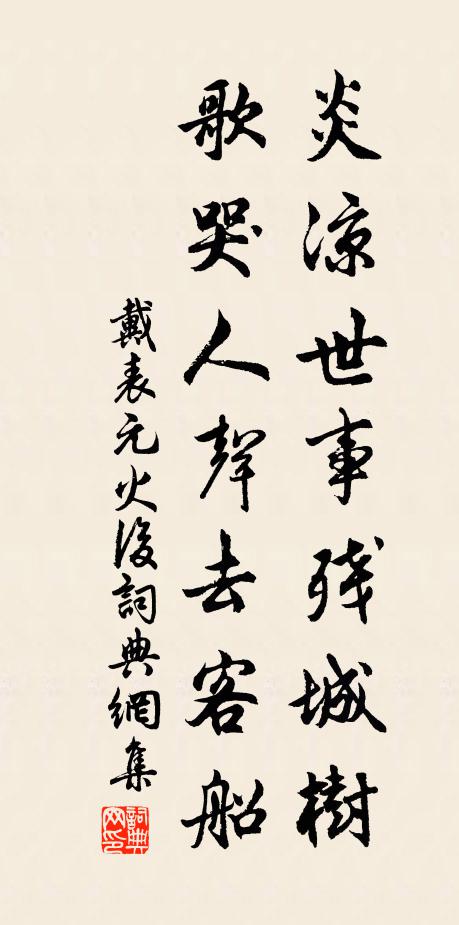 炎涼世事殘城樹
歌哭人聲去客船
戴表元火後詞典網集
詞典网印